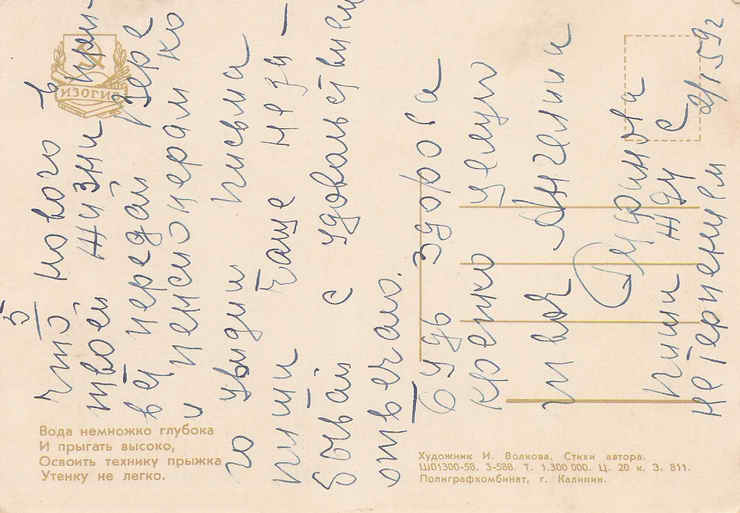 5
что нового в
твоей жизни при-
вет передай Вере
и пенсионерам ко
го увидиш письма
пиши чаще не за-
бывай с удовольствием
отвечаю.
будь здорова
крепко целую
твоя Ангелина
пиши жду с
нетерпением 2/I 59г
ИЗОГИЗ
Вода немножко глубока
И прыгать высоко,
Освоить технику прыжка
Утенку не легко.
Художник И. Волкова. Стихи автора.
Ш01300-58. З-588. Т. 1.300 000. Ц. 20 к. З. 811.
Полиграфкомбинат, г. Калинин.